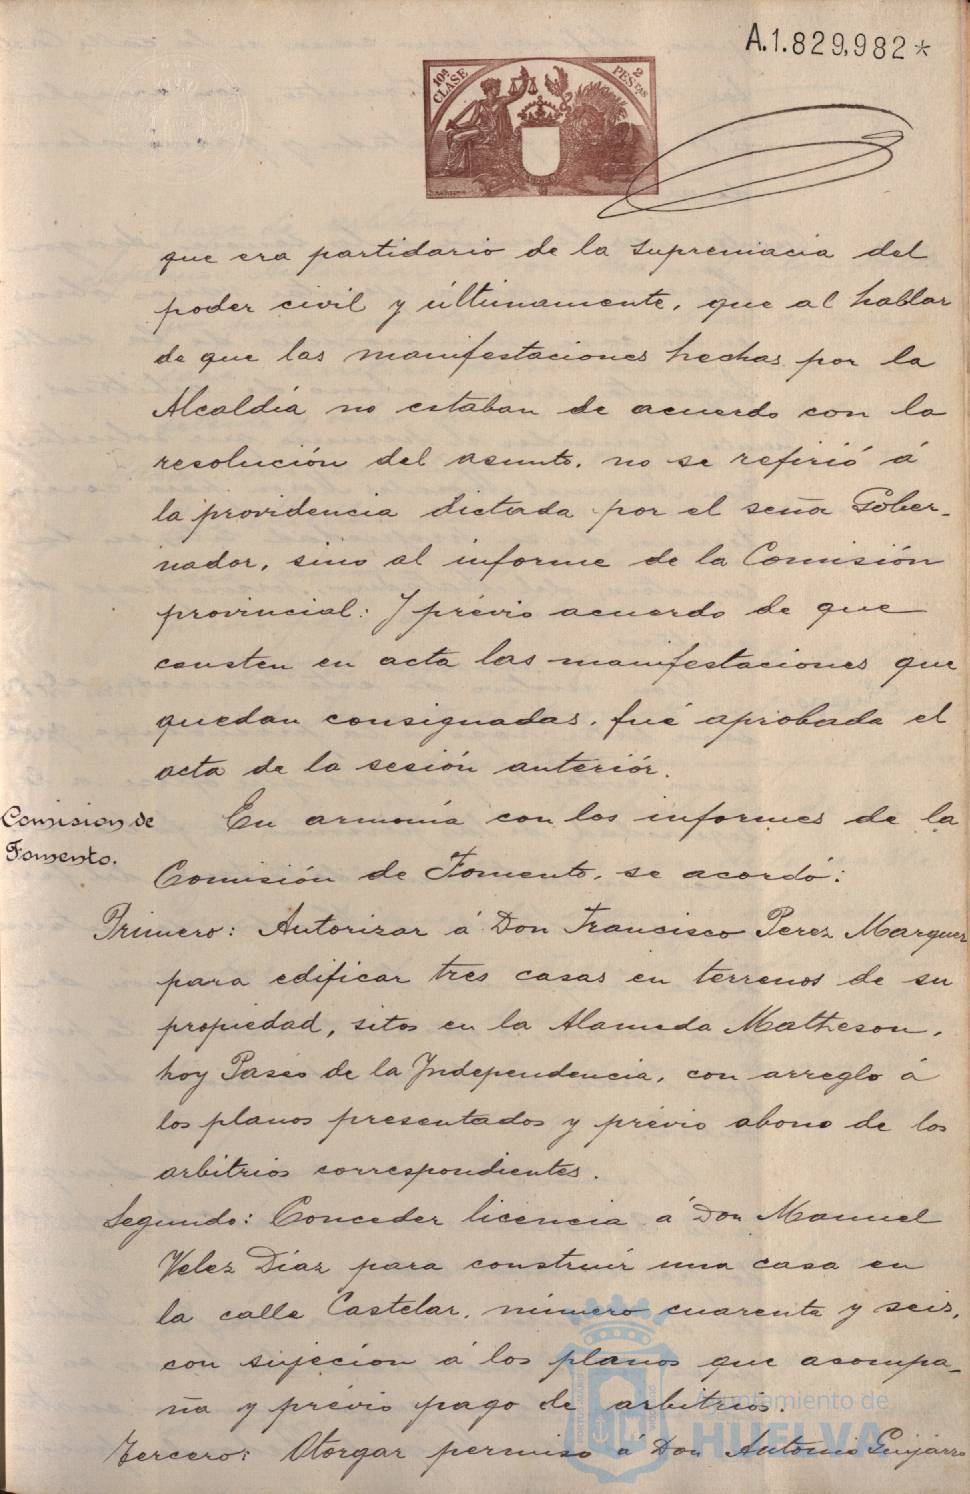 A.1.829,982*
10ª CLASE
2 PESTAS
que era partidario de la supremacia del
poder civil y últimamente, que al hablar
de que las manifestaciones hechas por la
Alcaldía no estaban de acuerdo con la
resolución del asunto, no se refirió á
la providencia dictada por el señor Gober-
nador, sino al informe de la Comisión
provincial: Y prévio acuerdo de que
consten en acta las manifestaciones que
quedan consignadas, fué aprobada el
acta de la sesión anteriór.
Comision de
Fomento.
En armonía con los informes de la
Comisión de Fomento, se acordó:
Primero: Autorizar á Don Francisco Perez Marquez
para edificar tres casas en terrenos de su
propiedad, sitos en la Alameda Matheson,
hoy Paseo de la Independencia, con arreglo á
los planos presentados y prévio abono de los
arbitrios correspondientes.
Segundo: Conceder licencia á Don Manuel
Velez Díaz para construir una casa en
la calle Castelar, número cuarenta y seis,
con sujeción á los planos que acompa-
ña y prévio pago de arbitrios.
Tercero: Otorgar permiso á Don Antonio Guijarro
Ayuntamiento de
HUELVA